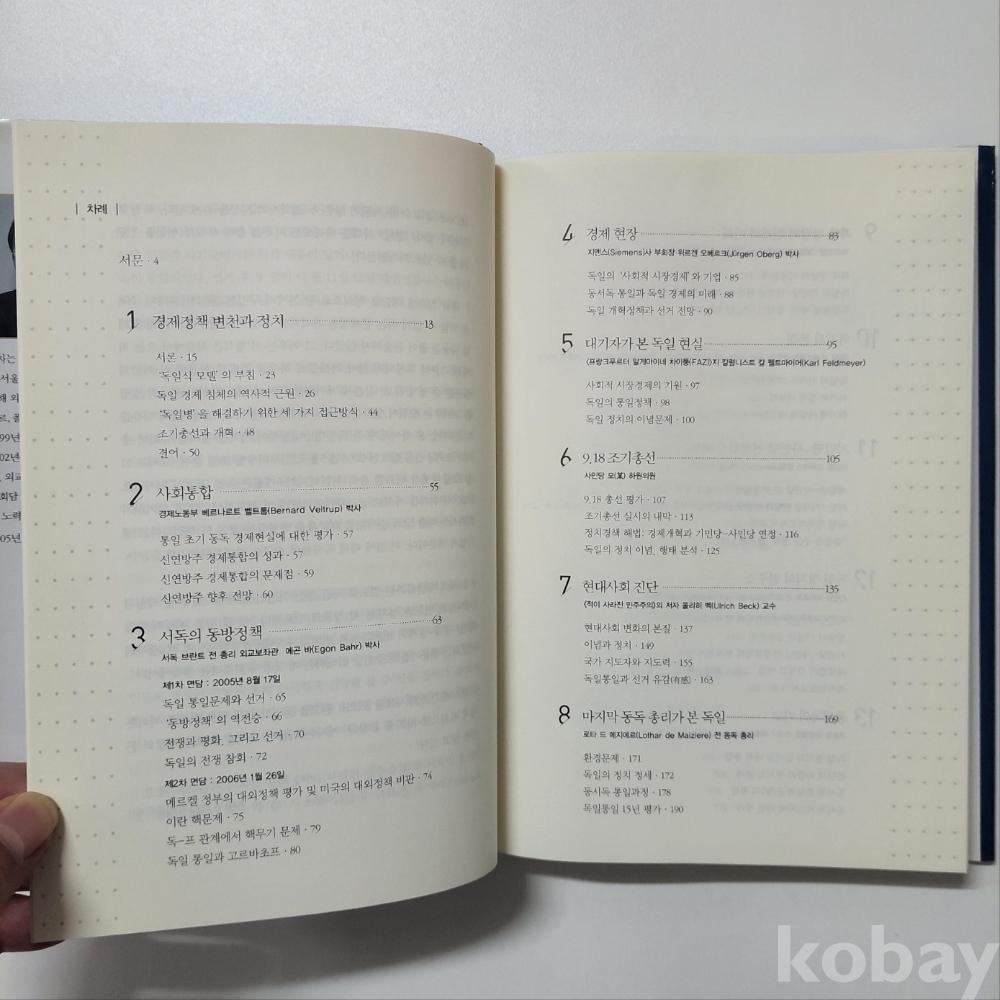 | 차례 |
서문 · 4
1 경제정책 변천과 정치 13
서론 · 15
'독일식 모델'의 부침 · 23
독일 경제 침체의 역사적 근원 · 26
'독일병'을 해결하기 위한 세 가지 접근방식 · 44
조기총선과 개혁 · 48
결어 · 50
2 사회통합 55
경제노동부 베르나르트 벨트룹(Bernard Veltrup) 박사
통일 초기 동독 경제현실에 대한 평가 · 57
신연방주 경제통합의 성과 · 57
신연방주 경제통합의 문제점 · 59
신연방주 향후 전망 · 60
3 서독의 동방정책 63
서독 브란트 전 총리 외교보좌관 에곤 바(Egon Bahr) 박사
제1차 면담 : 2005년 8월 17일
독일 통일문제와 선거 · 65
'동방정책'의 역전승 · 66
전쟁과 평화, 그리고 선거 · 70
독일의 전쟁 참회 · 72
제2차 면담 : 2006년 1월 26일
메르켈 정부의 대외정책 평가 및 미국의 대외정책 비판 · 74
이란 핵문제 · 75
독-프 관계에서 핵무기 문제 · 79
독일 통일과 고르바초프 · 80
4 경제 현장 83
지멘스(Siemens)사 부회장 위르겐 오베르크(Jürgen Oberg) 박사
독일의 '사회적 시장경제'와 기업 · 85
동서독 통일과 독일 경제의 미래 · 88
독일 개혁정책과 선거 전망 · 90
5 대기자가 본 독일 현실 95
〈프랑크푸르터 알게마이네 차이퉁(FAZ)〉지 칼럼니스트 칼 펠트마이어(Karl Feldmeyer)
사회적 시장경제의 기원 · 97
독일의 통일정책 · 98
독일 정치의 이념문제 · 100
6 9.18 조기총선 105
사민당 모(某) 하원의원
9.18 총선 평가 · 107
조기총선 실시의 내막 · 113
정치경색 해법: 경제개혁과 기민당-사민당 연정 · 116
독일의 정치 이념, 행태 분석 · 125
7 현대사회 진단 135
《적이 사라진 민주주의》의 저자 울리히 벡(Ulrich Beck) 교수
현대사회 변화의 본질 · 137
이념과 정치 · 149
국가 지도자와 지도력 · 155
독일통일과 선거 유감(有感) · 163
8 마지막 동독 총리가 본 독일 169
로타 드 메지에르(Lothar de Maiziere) 전 동독 총리
환경문제 · 171
독일의 정치 정세 · 172
동서독 통일과정 · 178
독일통일 15년 평가 · 190
kobay